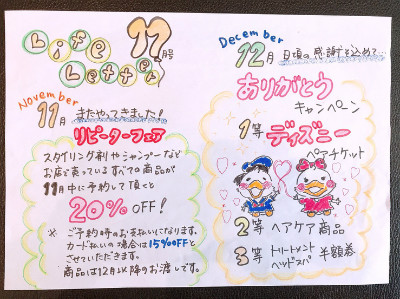 Life Letter 11月号
November
11月 またやってきました!
リピーターフェア
スタイリング剤やシャンプーなど
お店で売っているすべての商品が
11月中に予約して頂くと
20% OFF!
※ ご予約時のお支払いになります。
カード払いの場合は15%OFFと
させていただきます。
商品は12月以降のお渡しです。
December
12月 日頃の感謝を込めて...
ありがとう
キャンペーン
1等 ディズニー
ペアチケット
2等 ヘアケア商品
3等 トリートメント 半額券
ヘッドスパ